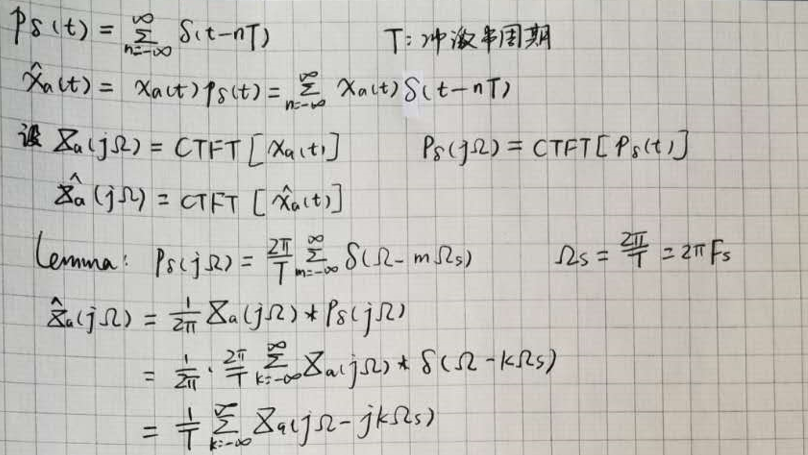 Pδ(t) = ∑_{n=-∞}^{∞} δ(t-nT) T: 冲激串周期
x̂a(t) = xa(t) pδ(t) = ∑_{n=-∞}^{∞} xa(t) δ(t-nT)
设 Xa(jΩ) = CTFT [xa(t)] Pδ(jΩ) = CTFT [Pδ(t)]
X̂a(jΩ) = CTFT [x̂a(t)]
Lemma: Pδ(jΩ) = 2π/T ∑_{m=-∞}^{∞} δ(Ω - mΩs) Ωs = 2π/T = 2πFs
X̂a(jΩ) = 1/2π Xa(jΩ) * Pδ(jΩ)
= 1/2π · 2π/T ∑_{k=-∞}^{∞} Xa(jΩ) * δ(Ω - kΩs)
= 1/T ∑_{k=-∞}^{∞} Xa(jΩ - jkΩs)